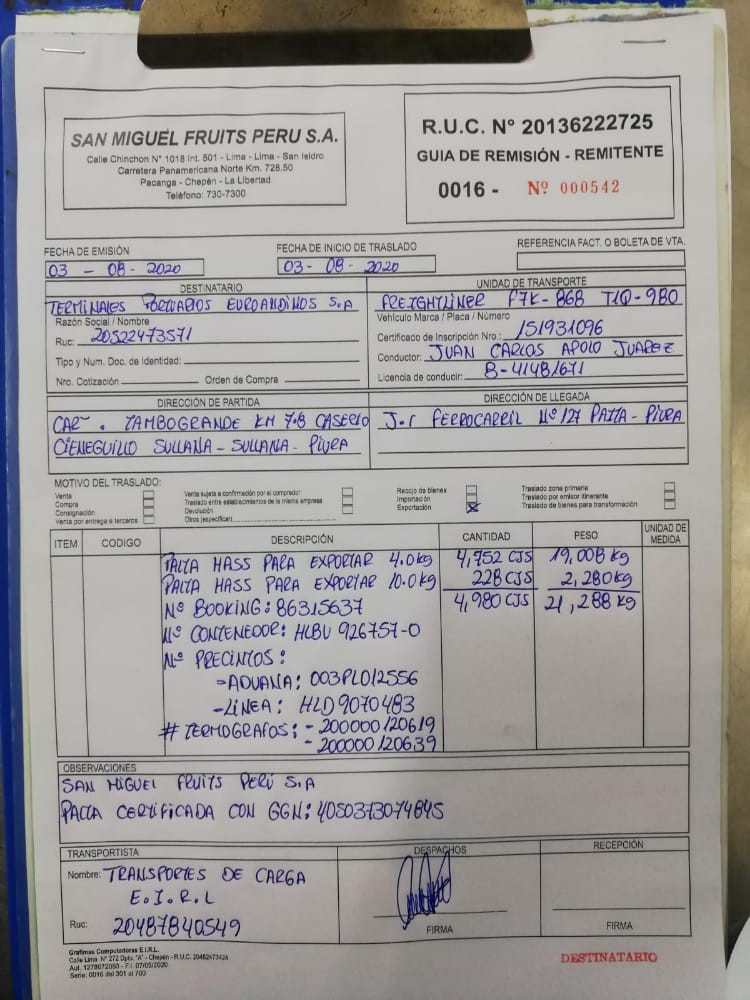 SAN MIGUEL FRUITS PERU S.A.
Calle Chinchon N° 1018 Int. 501 - Lima - Lima - San Isidro
Carretera Panamericana Norte Km. 728.50
Pacanga - Chepén - La Libertad
Teléfono: 730-7300
R.U.C. N° 20136222725
GUIA DE REMISIÓN - REMITENTE
0016 - Nº 000542
FECHA DE EMISIÓN
03 - 08 - 2020
FECHA DE INICIO DE TRASLADO
03 - 08 - 2020
REFERENCIA FACT. O BOLETA DE VTA.
DESTINATARIO
TERMINALES PORTUARIOS EUROANDINOS S.A
Razón Social / Nombre
Ruc: 20522473571
Tipo y Num. Doc. de Identidad:
Nro. Cotización Orden de Compra
UNIDAD DE TRANSPORTE
FREIGHTLINER P7K-868 T1Q-980
Vehículo Marca / Placa / Número
Certificado de Inscripción Nro.: 151931096
Conductor: JUAN CARLOS APOLO JUAREZ
Licencia de conducir: B-41481671
DIRECCIÓN DE PARTIDA
CAR. TAMBOGRANDE KM 7.8 CASERIO
CIENEGUILLO SULLANA - SULLANA - PIURA
DIRECCIÓN DE LLEGADA
J.r FERROCARRIL Nº 127 PAITA - PIURA
MOTIVO DEL TRASLADO:
Venta
Compra
Consignación
Venta por entrega a terceros
Venta sujeta a confirmación por el comprador
Traslado entre establecimientos de la misma empresa
Devolución
Otros (especificar)
Recojo de bienes
Importación
Exportación X
Traslado zona primaria
Traslado por emisor itinerante
Traslado de bienes para transformación
ITEM CODIGO DESCRIPCIÓN CANTIDAD PESO UNIDAD DE MEDIDA
PALTA HASS PARA EXPORTAR 4.0kg 4,752 CJS 19,008 kg
PALTA HASS PARA EXPORTAR 10.0kg 228 CJS 2,280kg
Nº BOOKING: 86315637 4,980 CJS 21,288 kg
Nº CONTENEDOR: HLBU 926757-0
Nº PRECINTOS:
-ADUANA: 003PL012556
-LINEA: HLD9070483
# TERMOGRAFOS: - 200000120619
- 200000120639
OBSERVACIONES
SAN MIGUEL FRUITS PERÚ S.A
PALTA CERTIFICADA CON GGN: 4050373074845
TRANSPORTISTA
Nombre: TRANSPORTES DE CARGA
E.I.R.L
Ruc: 20487840549
DESPACHOS
FIRMA
RECEPCIÓN
FIRMA
Grafimas Computadoras E.I.R.L.
Calle Lima N° 272 Dpto. "A" - Chepén - R.U.C. 20482473424
Aut. 1278072053 - F.I. 07/05/2020
Serie: 0016 del 301 al 700
DESTINATARIO